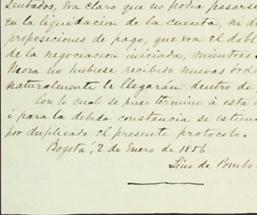 sentados, era claro que no podia pasarse
en la liquidacion de la cuenta, ni de
proposiciones de pago, que era el dobl
de la negociacion iniciada, mientras
Mora no hubiese recibido nuevas órde
naturalmente le llegarán dentro de
Con lo cual se puso término á esta
i para la debida constancia se
por duplicado el presente protocolo.
Bogotá, 2 de Enero de 1856
Lino de Pombo